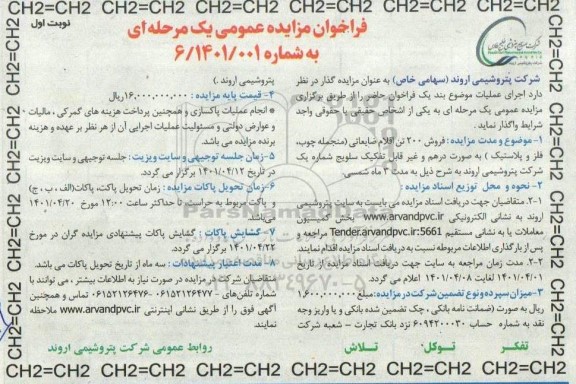 CH2=CH2 CH2=CH2 CH2=CH2 CH2=CH2 CH2=CH2 CH2=CH2 CH2=CH2
نوبت اول
فراخوان مزایده عمومی یک مرحله‌ای
به شماره ۶/۱۴۰۱/۰۰۱
شرکت پتروشیمی اروند (سهامی خاص) به عنوان مزایده گذار در نظر
دارد اجرای عملیات موضوع بند یک فراخوان حاضر را از طریق برگزاری
مزایده عمومی یک مرحله ای به یکی از اشخاص حقیقی یا حقوقی واجد
شرایط واگذار نماید.
۱-موضوع و مدت مزایده: فروش ۲۰۰ تن اقلام ضایعاتی (منجمله چوب،
فلز و پلاستیک ) به صورت درهم و غیر قابل تفکیک سلویج شماره یک
شرکت پتروشیمی اروند به شرح ذیل به مدت ۳ ماه شمسی.
۲- نحوه و محل توزیع اسناد مزایده:
۲-۱. متقاضیان جهت دریافت اسناد مزایده می بایست به سایت پتروشیمی
اروند به نشانی الکترونیکی www.arvandpvc.ir بخش
معاملات یا به نشانی مستقیم Tender.arvandpvc.ir:5661 مراجعه و
پس از بارگذاری اطلاعات مربوطه نسبت به دریافت اسناد مزایده اقدام نمایند.
۲-۲. مدت زمان مراجعه به سایت جهت دریافت اسناد مزایده: از تاریخ
۱۴۰۱/۰۴/۰۱ لغایت ۱۴۰۱/۰۴/۰۸ اعلام می گردد.
۳-میزان سپرده و نوع تضمین شرکت در مزایده: مبلغ ۱,۶۰۰,۰۰۰,۰۰۰
ریال به صورت (ضمانت نامه بانکی ، چک تضمین شده بانکی و یا واریز وجه
نقد به شماره حساب ۶۰۹۴۲۰۰۳۰ نزد بانک تجارت – شعبه شرکت
پتروشیمی اروند.)
۴- قیمت پایه مزایده : ۱۶,۰۰۰,۰۰۰,۰۰۰ ریال
* انجام عملیات پاکسازی و همچنین پرداخت هزینه های گمرکی ، مالیات
و عوارض دولتی و مسئولیت عملیات اجرایی آن از هر نظر بر عهده و هزینه
برنده مزایده می باشد.
۵-زمان جلسه توجیهی و سایت ویزیت: جلسه توجیهی و سایت ویزیت
در تاریخ ۱۴۰۱/۰۴/۱۲ برگزار می گردد.
۶-زمان تحویل پاکات مزایده : زمان تحویل پاکت، پاکات(الف ، ب ، ج)
و پاکت مربوط به حراسید تا حداکثر ساعت ۱۲:۰۰ مورخ ۱۴۰۱/۰۴/۲۰
می‌باشد.
۷- گشایش پاکات : گشایش پاکات پیشنهادی مزایده گران در مورخ
۱۴۰۱/۰۴/۲۲ برگزار می گردد.
۸-مدت اعتبار پیشنهادات : سه ماه از تاریخ تحویل پاکات می باشد.
متقاضیان شرکت در مزایده در صورت نیاز به اطلاعات بیشتر ، می توانند با
شماره تلفن‌های ۰۶۱۵۲۱۲۶۴۷۷-۰۶۱۵۲۱۲۶۴۷۶ تماس و همچنین
آگهی فوق را از طریق نشانی اینترنتی www.arvandpvc.ir ملاحظه
نمایند.
تفکر توکل تلاش
روابط عمومی شرکت پتروشیمی اروند
CH2=CH2 CH2=CH2 CH2=CH2 CH2=CH2 CH2=CH2 CH2=CH2